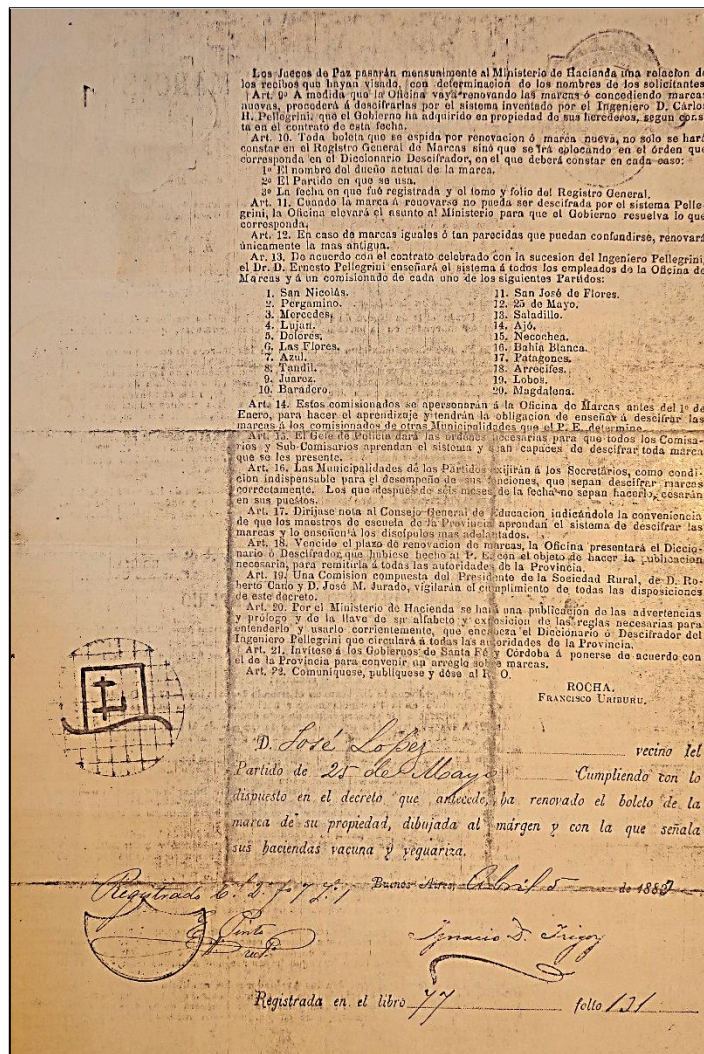 Los Jueces de Paz pasarán mensualmente al Ministerio de Hacienda una relacion de
los recibos que hayan visado, con determinacion de los nombres de los solicitantes
Art. 9º A medida que la Oficina vaya renovando las marcas ó concediendo marcas
nuevas, procederá á descifrarlas por el sistema inventado por el Ingeniero D. Cárlos
H. Pellegrini, que el Gobierno ha adquirido en propiedad de sus herederos, segun cons
ta en el contrato de esta fecha.
Art. 10. Toda boleta que se espida por renovacion ó marca nueva, no solo se hará
constar en el Registro General de Marcas sinó que se irá colocando en el órden que
corresponda en el Diccionario Descifrador, en el que deberá constar en cada caso:
1º El nombre del dueño actual de la marca.
2º El Partido en que se usa.
3º La fecha en que fué registrada y el tomo y folio del Registro General.
Art. 11. Cuando la marca á renovarse no pueda ser descifrada por el sistema Pelle-
grini, la Oficina elevará el asunto al Ministerio para que el Gobierno resuelva lo que
corresponda,
Art. 12. En caso de marcas iguales ó tan parecidas que puedan confundirse, renovará
únicamente la mas antigua.
Ar. 13. De acuerdo con el contrato celebrado con la sucesion del Ingeniero Pellegrini,
el Dr. D. Ernesto Pellegrini enseñará el sistema á todos los empleados de la Oficina de
Marcas y á un comisionado de cada uno de los siguientes Partidos:
1. San Nicolás.
2. Pergamino.
3. Mercedes.
4. Lujan.
5. Dolores.
6. Las Flores.
7. Azul.
8. Tandil.
9. Juarez.
10. Baradero.
11. San José de Flores.
12. 25 de Mayo.
13. Saladillo.
14. Ajó.
15. Necochea.
16. Bahía Blanca.
17. Patagones.
18. Arrecifes.
19. Lobos.
20. Magdalena.
Art. 14. Estos comisionados se apersonarán á la Oficina de Marcas antes del 1º de
Enero, para hacer el aprendizaje y tendrán la obligacion de enseñar á descifrar las
marcas á los comisionados de otras Municipalidades que el P. E. determine.
Art. 15. El Gefe de Policía dará las órdenes necesarias para que todos los Comisa-
rios y Sub-Comisarios aprendan el sistema y sean capaces de descifrar toda marca
que se les presente.
Art. 16. Las Municipalidades de los Partidos exijirán á los Secretários, como condi-
cion indispensable para el desempeño de sus funciones, que sepan descifrar marcas
correctamente. Los que despues de seis meses de la fecha no sepan hacerlo, cesarán
en sus puestos.
Art. 17. Diríjase nota al Consejo General de Educacion indicándole la conveniencia
de que los maestros de escuela de la Provincia aprendan el sistema de descifrar las
marcas y lo enseñen á los discípulos mas adelantados.
Art. 18. Vencido el plazo de renovacion de marcas, la Oficina presentará el Diccio-
nario ó Descifrador que hubiese hecho al P. E. con el objeto de hacer la publicacion
necesaria, para remitirla á todas las autoridades de la Provincia.
Art. 19. Una Comision compuesta del Presidente de la Sociedad Rural, de D. Ro-
berto Cano y D. José M. Jurado, vigilarán el cumplimiento de todas las disposiciones
de este decreto.
Art. 20. Por el Ministerio de Hacienda se hará una publicacion de las advertencias
y prólogo y de la llave de su alfabeto y exposicion de las reglas necesarias para
entenderlo y usarlo corrientemente, que encabeza el Diccionario ó Descifrador del
Ingeniero Pellegrini que circulará á todas las autoridades de la Provincia.
Art. 21. Invítese á los Gobiernos de Santa Fé y Córdoba á ponerse de acuerdo con
el de la Provincia para convenir un arreglo sobre marcas.
Art. 22. Comuníquese, publíquese y dése al R. O.
ROCHA.
FRANCISCO URIBURU.
D. José Lopez vecino del
Partido de 25 de Mayo Cumpliendo con lo
dispuesto en el decreto que antecede, ha renovado el boleto de la
marca de su propiedad, dibujada al márgen y con la que señala
sus haciendas vacuna y yeguariza.
Registrado Buenos Aires, Abril 5 de 188
Pinto
Ignacio D. Irigoy
Registrada en el libro 77 folio 121